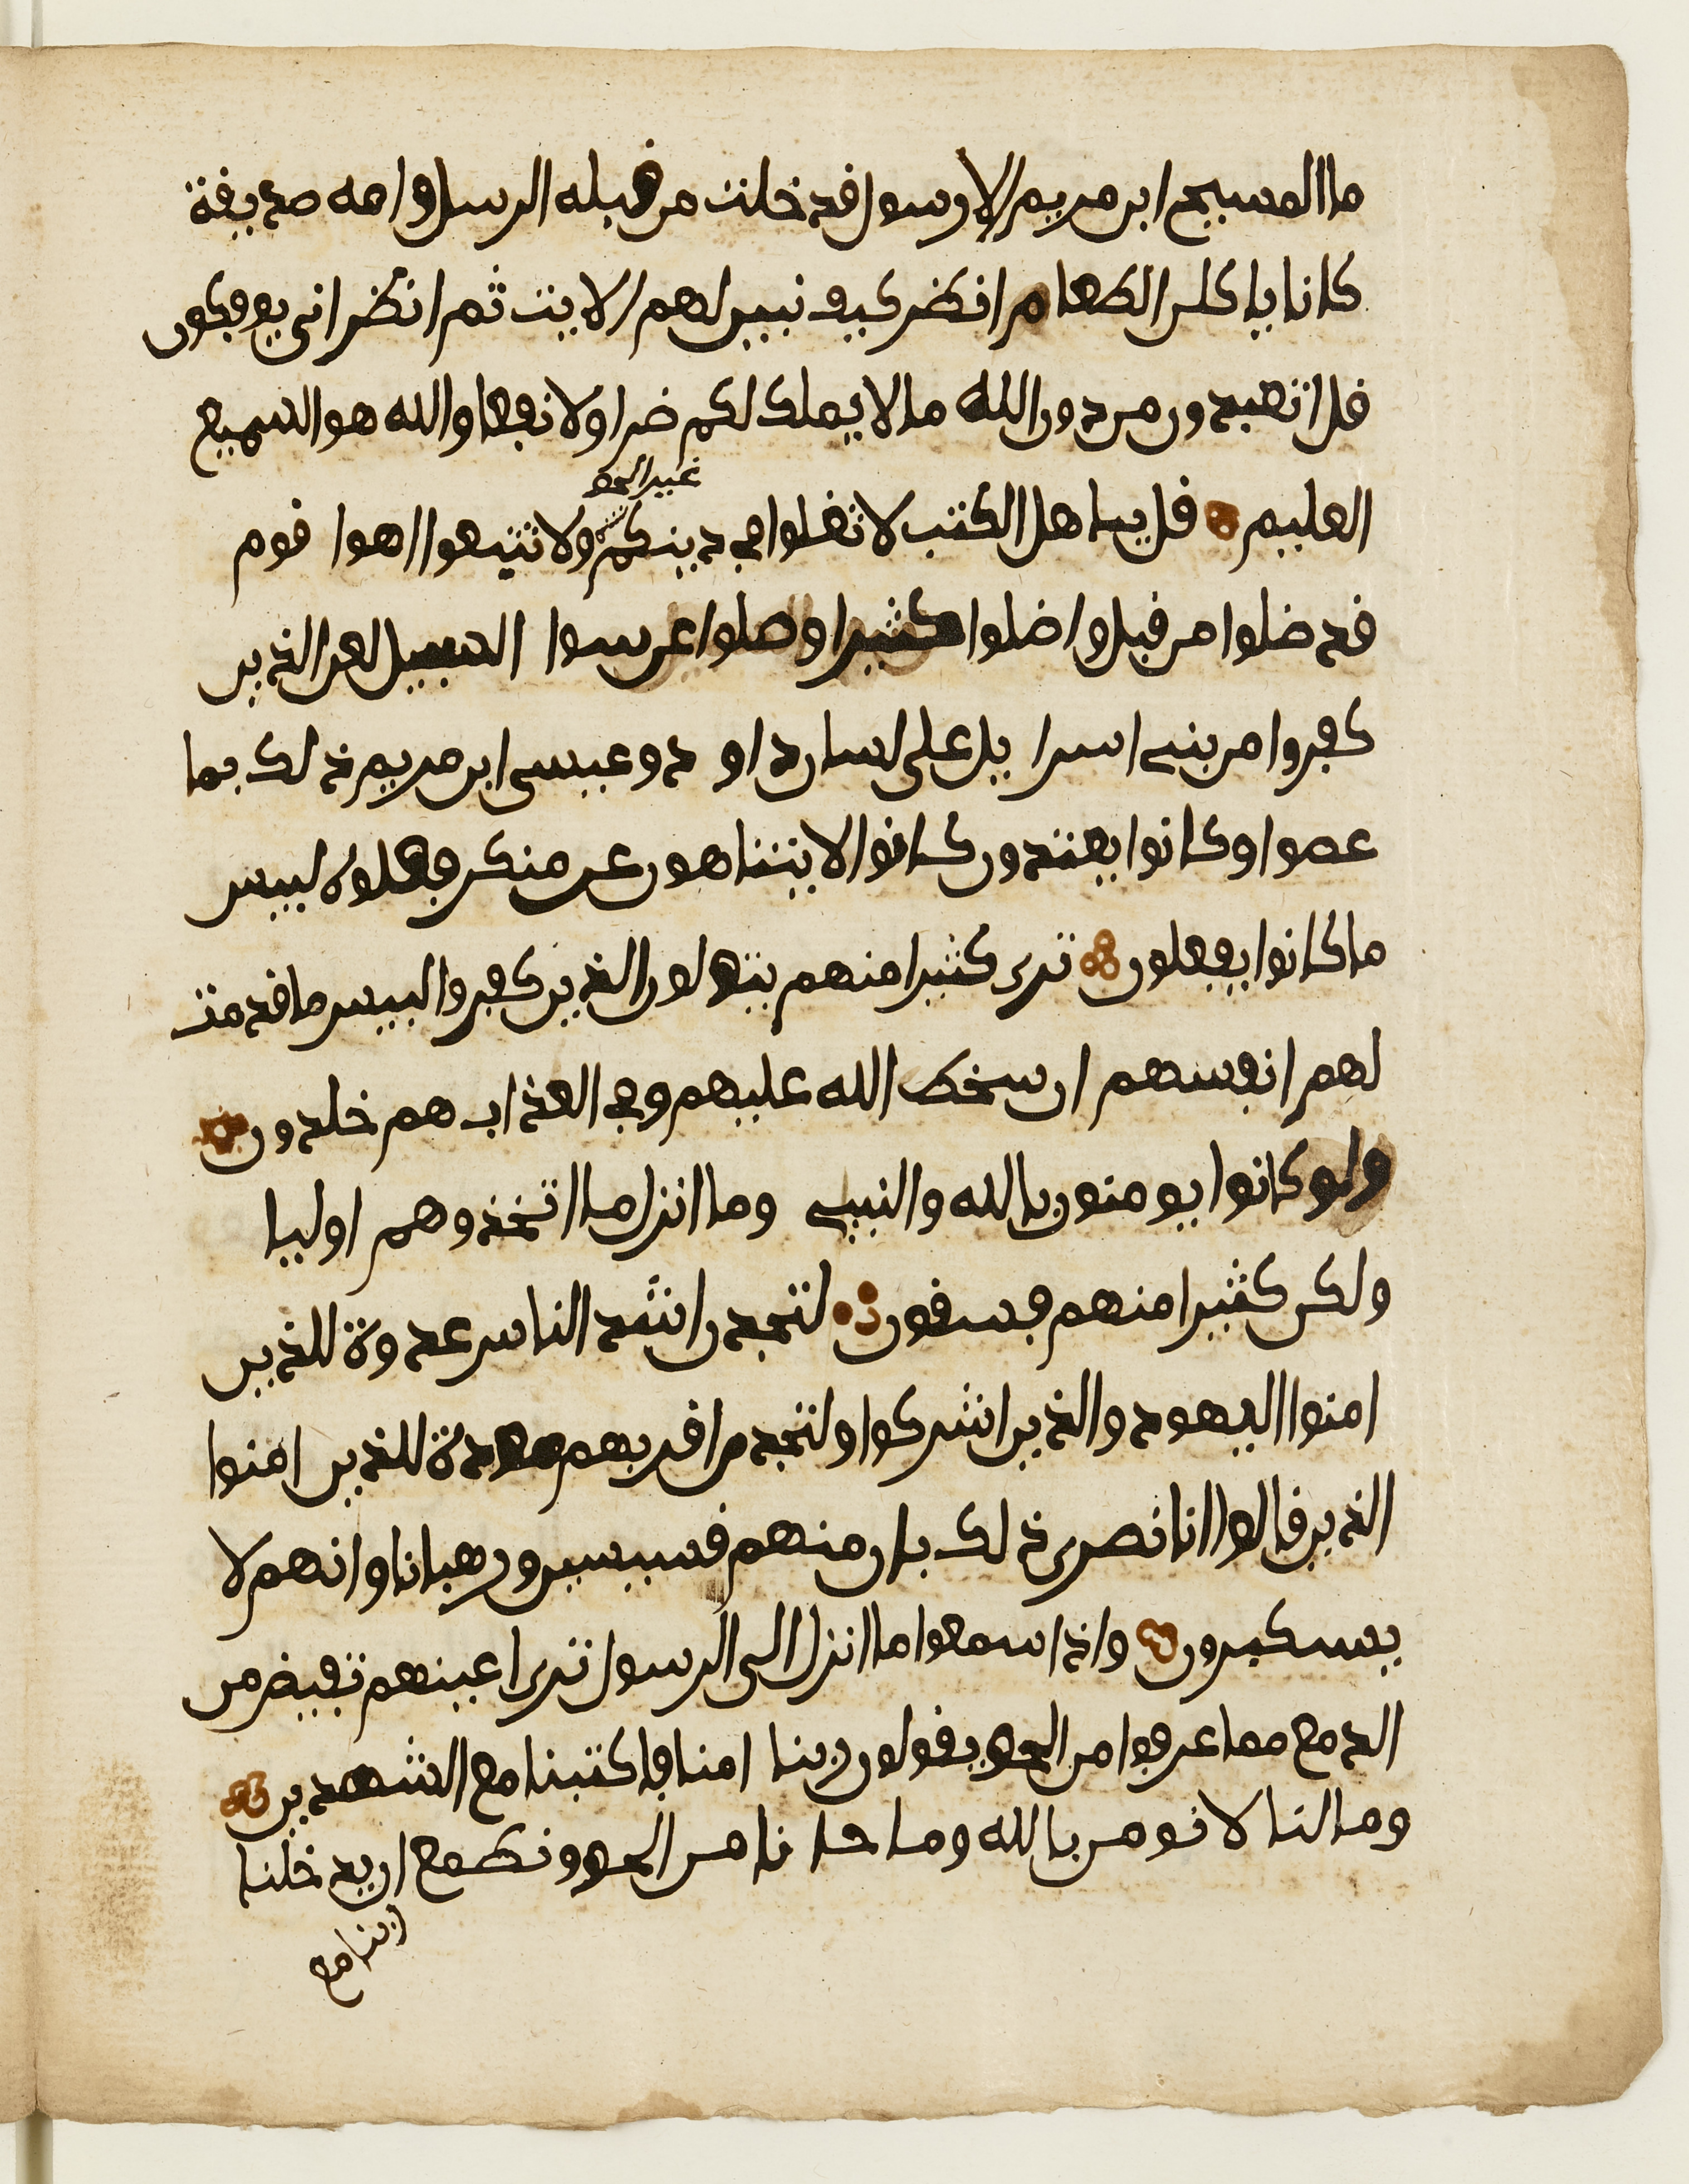 ما المسيح ابن مريم الا رسول قد خلت من قبله الرسل وامه صديقة
كانا ياكلن الطعام انظر كيف نبين لهم الايت ثم انظر انى يوفكون
قل اتعبدون من دون الله ما لا يملك لكم ضرا ولا نفعا والله هو السميع
غير الحق
العليم قل ياهل الكتب لا تغلوا في دينكم ولا تتبعوا اهوا قوم
قد ضلوا من قبل واضلوا كثيرا وضلوا عن سوا السبيل لعن الذين
كفروا من بني اسرا يل على لسان داو د وعيسى ابن مريم ذلك بما
عصوا وكانوا يعتدون كانوا لا يتناهون عن منكر فعلوه لبيس
ما كانوا يفعلون ترى كثيرا منهم يتولون الذين كفروا لبيس ما قدمت
لهم انفسهم ان سخط الله عليهم وفي العذاب هم خلدون
ولو كانوا يومنون بالله والنبي وما انزل ما اتخذوهم اوليا
ولكن كثيرا منهم فسقون لتجدن اشد الناس عدوة للذين
امنوا اليهود والذين اشركوا ولتجدن اقربهم مودة للذين امنوا
الذين قالوا انا نصرى ذلك بان منهم قسيسين ورهبانا وانهم لا
يستكبرون واذا سمعوا ما انزل الى الرسول ترى اعينهم تفيض من
الدمع مما عرفوا من الحق يقولون ربنا امنا فاكتبنا مع الشهدين
وما لنا لا نومن بالله وما جا نا من الحق ونطمع ان يدخلنا
ربنا مع